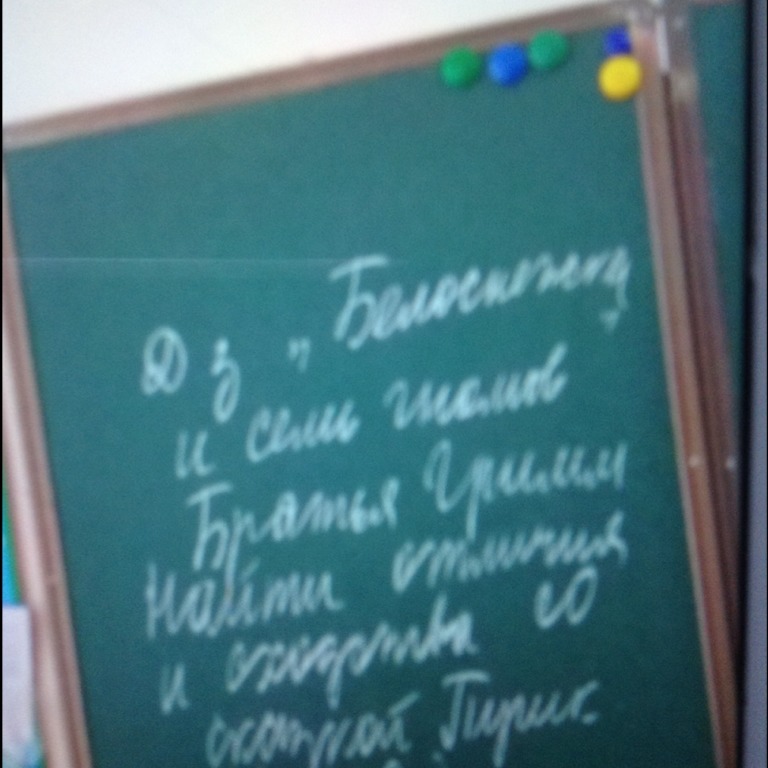 Дз „Белоснежка
и семь гномов"
Братья Гримм
Найти отличия
и сходства со
сказкой